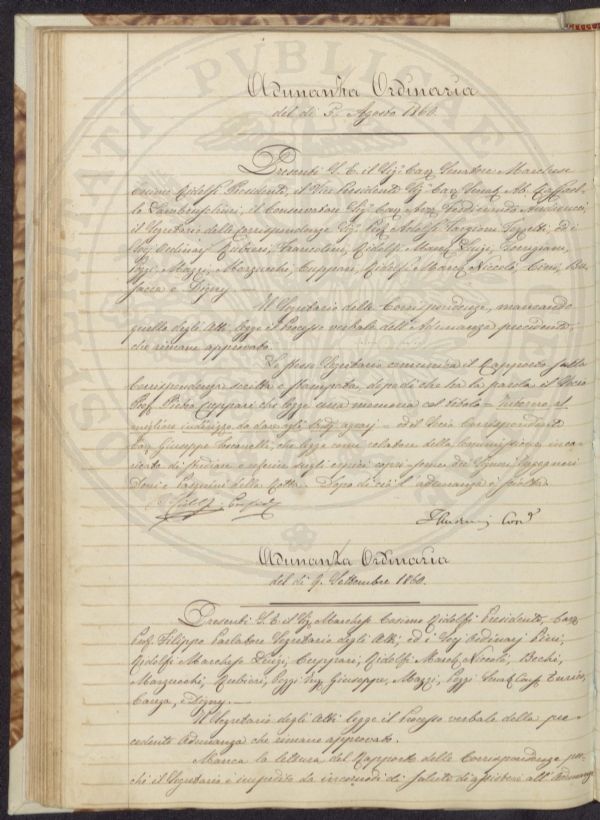 Adunanza Ordinaria
del dì 5. Agosto 1860.
Presenti S. E. il Sig.r Cav. Senatore Marchese
Cosimo Ridolfi Presidente, il Vice Presidente Sig.r Cav. Senat. Ab. Raffael-
lo Lambruschini, il Conservatore Sig.r Cav. Avv. Ferdinando Andreucci,
il Segretario delle Corrispondenze Sig. Prof. Adolfo Targioni Tozzetti, ed i
Socj Ordinarj Rubieri, Ridolfi March. Luigi,
Pozzi, Mazzi, Marzucchi, Cuppari, Ridolfi March. Niccolò, Cini, Bu-
sacca e Digny.
Il Segretario delle Corrispondenze, mancando
quello degli Atti, legge il Processo verbale dell'Adunanza precedente,
che rimane approvato.
Lo stesso Segretario comunica il Rapporto sulla
Corrispondenza scritta e stampata, dopo di che ha la parola il Socio
Prof. Pietro Cuppari che legge una memoria col titolo = Intorno al
migliore indirizzo da dare agli studj agrarj = ed il Socio Corrispondente
Cav. Giuseppe che legge come relatore della Commissione inca-
ricata di studiare e riferire sugli dei Signori Ingegneri
Doni e Pasquini della Dopo di ciò l'adunanza è sciolta.
Adunanza Ordinaria
del dì 9. Settembre 1860.
Presenti S. E. il Sig. Marchese Cosimo Ridolfi Presidente, Cav.
Prof. Filippo Parlatore Segretario degli Atti, ed i Socj Ordinarj Pieri,
Ridolfi Marchese Luigi, Cuppari, Ridolfi March. Niccolò, Bechi,
Marzucchi, Rubieri, Pozzi Ing. Giuseppe, Mazzi, Pozzi Enrico,
e Digny.
Il Segretario degli Atti legge il Processo verbale della pre-
cedente Adunanza che rimane approvato.
Manca la lettura del Rapporto delle Corrispondenze per-
chè il Segretario è impedito da incomodi di salute di assistere all'Adunanza